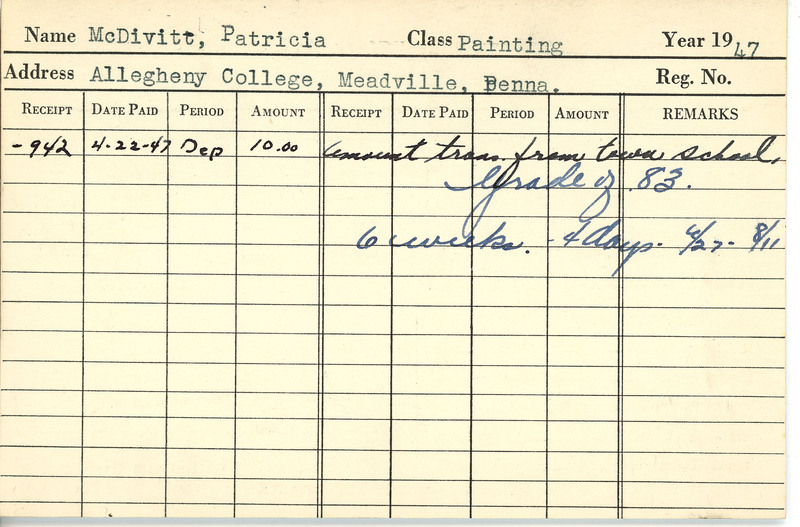 Name McDivitt, Patricia Class Painting Year 1947
Address Allegheny College, Meadville, Penna. Reg. No.
RECEIPT DATE PAID PERIOD AMOUNT RECEIPT DATE PAID PERIOD AMOUNT REMARKS
-942 4-22-47 Dep 10.00 Amount trans. from town school.
Grade of 83.
6 weeks. - 4 days - 6/27 - 8/11